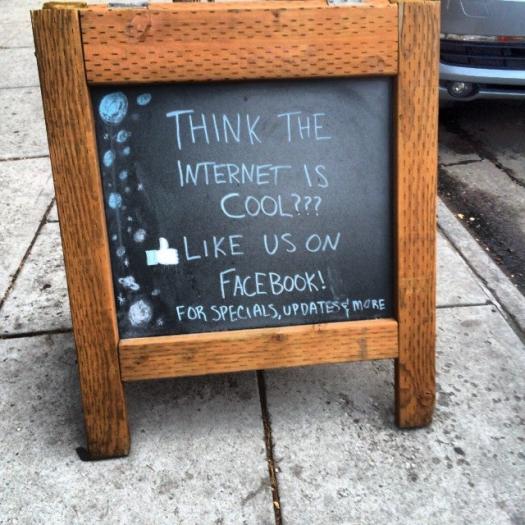 THINK THE
INTERNET IS
COOL???
LIKE US ON
FACEBOOK!
FOR SPECIALS, UPDATES & MORE